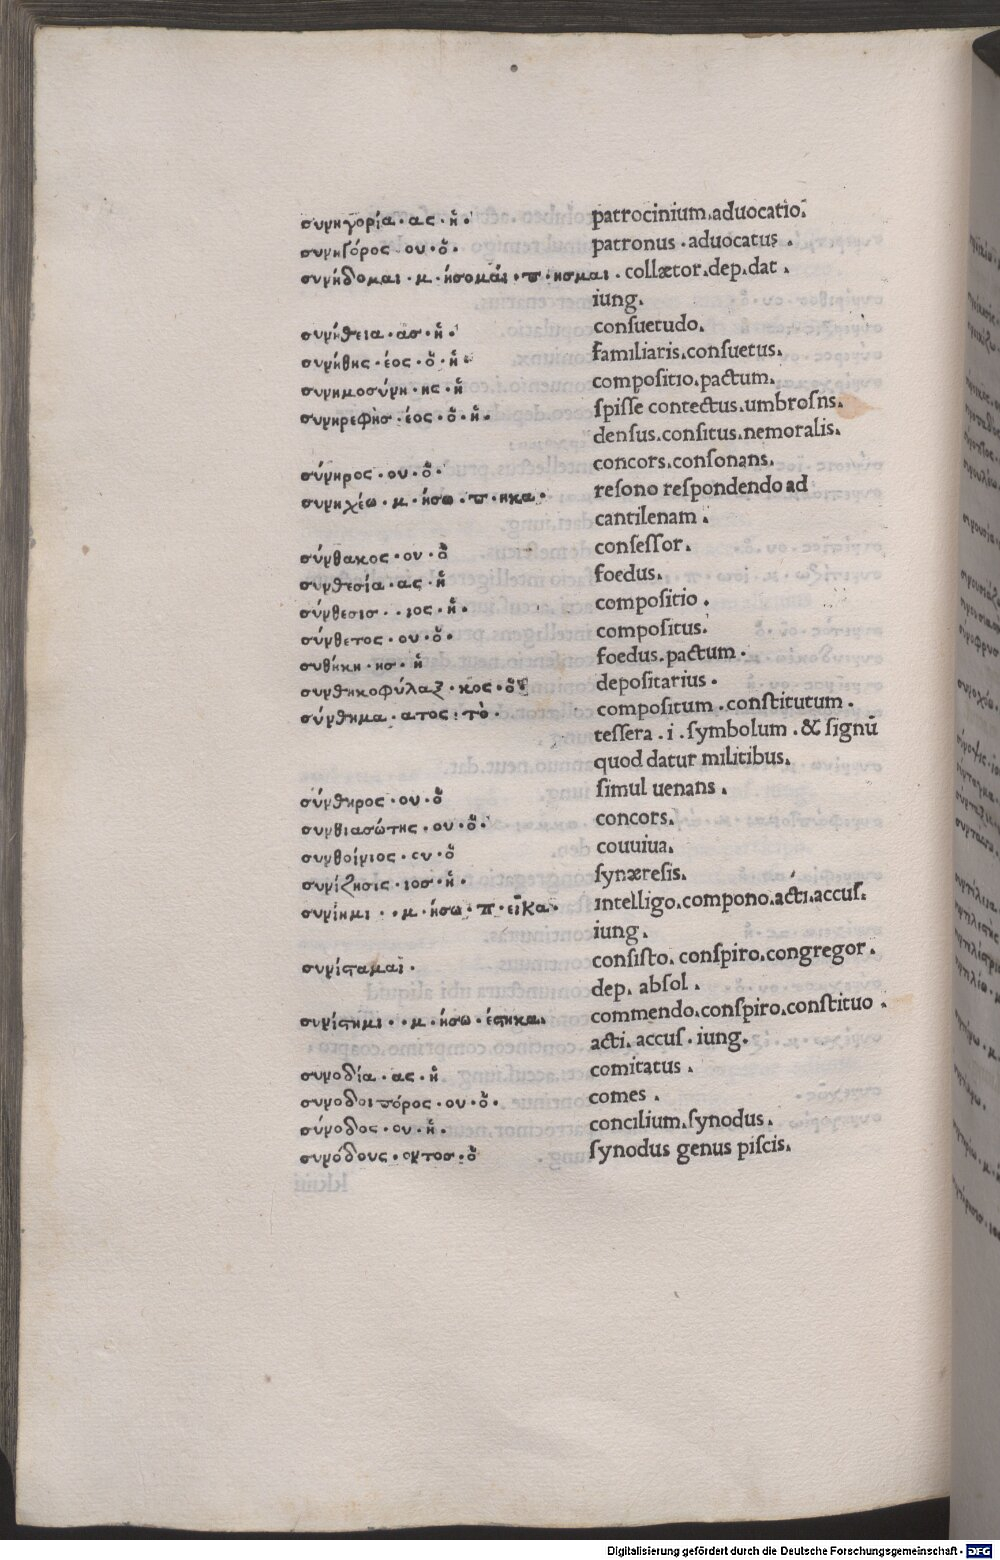 συνηγορία · ας · ἡ · patrocinium.aduocatio.
συνήγορος · ου · ὁ · patronus · aduocatus .
συνήδομαι · μ · ήσομαι · π · ησμαι · collætor.dep.dat .
iung.
συνήθεια · ασ · ἡ · consuetudo.
συνήθης · έος · ὁ · ἡ · familiaris.consuetus.
συνημοσύνη · ης · ἡ compositio.pactum.
συνηρεφήσ · έος · ὁ · ἡ · spisse contectus.umbrosns.
densus.consitus.nemoralis.
σύνηρος · ου · ὁ · concors.consonans.
συνηχέω · μ · ήσω · π · ηκα · resono respondendo ad
cantilenam .
σύνθακος · ου · ὁ consessor.
συνθεσία · ας · ἡ foedus.
σύνθεσισ . . ιος · ἡ · compositio .
σύνθετος · ου · ὁ · compositus.
συθήκη · ησ · ἡ foedus.pactum .
συνθηκοφύλαξ · κος · ὁ depositarius .
σύνθημα · ατος : τὸ · compositum · constitutum .
tessera . i . symbolum . & signū
quod datur militibus.
σύνθηρος · ου · ὁ simul uenans .
συνθιασώτης · ου · ὁ · concors.
συνθοίνιος · ου · ὁ couuiua.
συνίζησις · ιοσ · ἡ · synæresis.
συνίημι · · μ · ήσω · π · εἶκα · intelligo.compono.acti.accus.
iung.
συνίσταμαι · consisto. conspiro.congregor .
dep. absol .
συνίστημι · · μ · ήσω · έστηκα . commendo.conspiro.constituo .
acti. accus . iung.
συνοδία · ας · ἡ comitatus .
συνοδοιπόρος · ου · ὁ · comes .
σύνοδος · ου · ἡ · concilium.synodus.
συνόδους · οντοσ · ὁ synodus genus piscis.
Digitalisierung gefördert durch die Deutsche Forschungsgemeinschaft - DFG